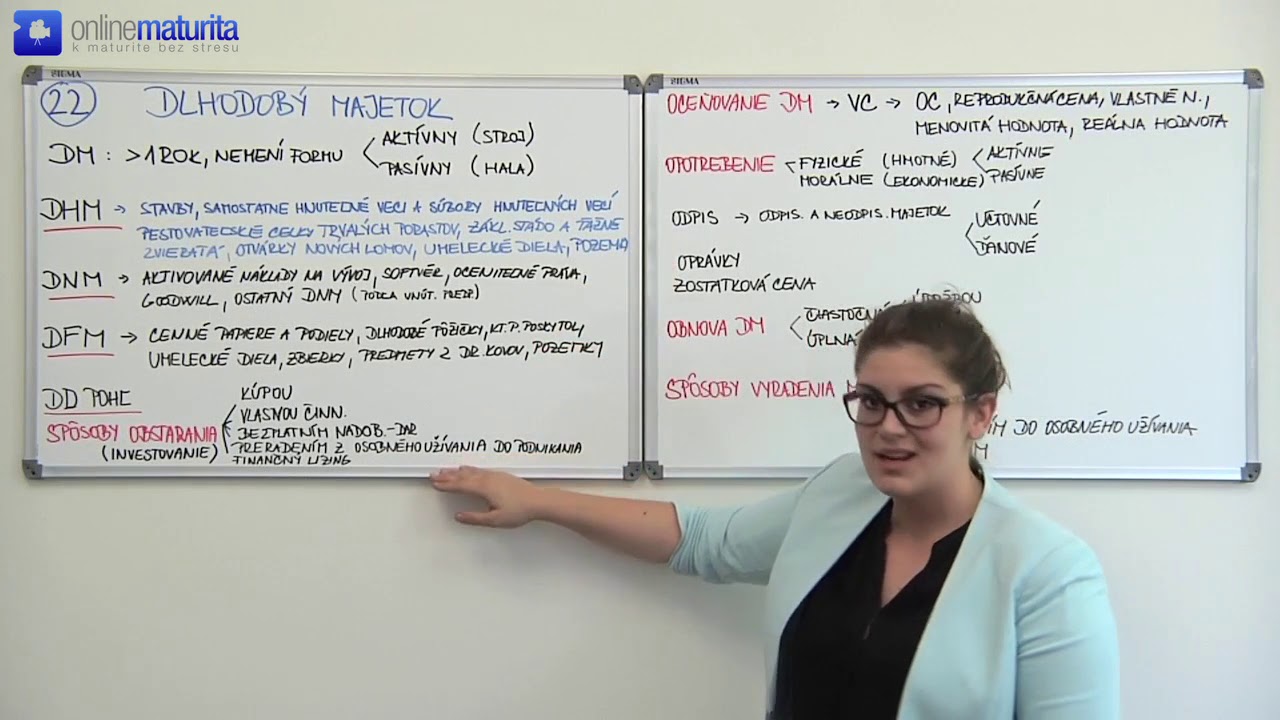 onlinematurita
k maturite bez stresu
SIGMA
SIGMA
22 DLHODOBÝ MAJETOK
DM : > 1 ROK, NEMENÍ FORMU
AKTÍVNY (STROJ)
PASÍVNY (HALA)
DHM → STAVBY, SAMOSTATNE HNUTEĽNÉ VECI A SÚBORY HNUTEĽNÝCH VECÍ
PESTOVATEĽSKÉ CELKY TRVALÝCH PORASTOV, ZÁKL. STÁDO A ŤAŽNÉ
ZVIERATÁ, OTVÁRKY NOVÝCH LOMOV, UMELECKÉ DIELA, POZEMK
DNM → AKTIVOVANÉ NÁKLADY NA VÝVOJ, SOFTVÉR, OCENITEĽNÉ PRÁVA,
GOODWILL, OSTATNÝ DNM (PODĽA VNÚT. PREDP.)
DFM → CENNÉ PAPIERE A PODIELY, DLHODOBÉ PÔŽIČKY, POSKYTOL,
UMELECKÉ DIELA, ZBIERKY, PREDMETY Z DR. KOVOV, POZEMKY
DD POHĽ
SPÔSOBY OBSTARANIA
(INVESTOVANIE)
KÚPOU
VLASTNOU ČINN.
BEZPLATNÝM NADOB. - DAR
PRERADENÍM Z OSOBNÉHO UŽÍVANIA DO PODNIKANIA
FINANČNÝ LÍZING
OCEŇOVANIE DM → VC → OC, REPRODUKČNÁ CENA, VLASTNÉ N.,
MENOVITÁ HODNOTA, REÁLNA HODNOTA
OPOTREBENIE
FYZICKÉ (HMOTNÉ)
AKTÍVNE
PASÍVNE
MORÁLNE (EKONOMICKÉ)
ODPIS → ODPIS. A NEODPIS. MAJETOK
ÚČTOVNÉ
DAŇOVÉ
OPRÁVKY
ZOSTATKOVÁ CENA
OBNOVA DM
ČIASTOČNÁ
ÚPLNÁ
SPÔSOBY VYRADENIA
DO OSOBNÉHO UŽÍVANIA